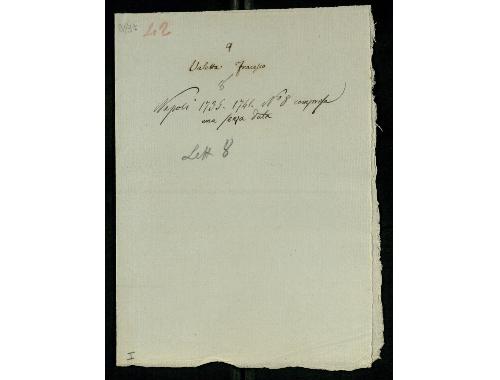 L2
9
Valetta Francesco
8
Napoli 1735-1741. N° 8 compresa
una senza data
Lett 8
I